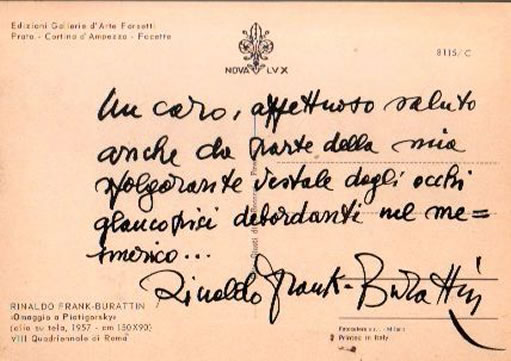 Edizioni Gallerie d'Arte Forsetti
Prato - Cortina d'Ampezzo - Facette
NOVA LVX
8115/C
Un caro, affettuoso saluto
anche da parte della mia
folgorante vestale dagli occhi
glaucopici debordanti nel me=
smerico...
Rinaldo Frank-Burattin
RINALDO FRANK-BURATTIN
«Omaggio a Piatigorsky»
(olio su tela, 1957 - cm 130X90)
VIII Quadriennale di Roma
Printed in Italy